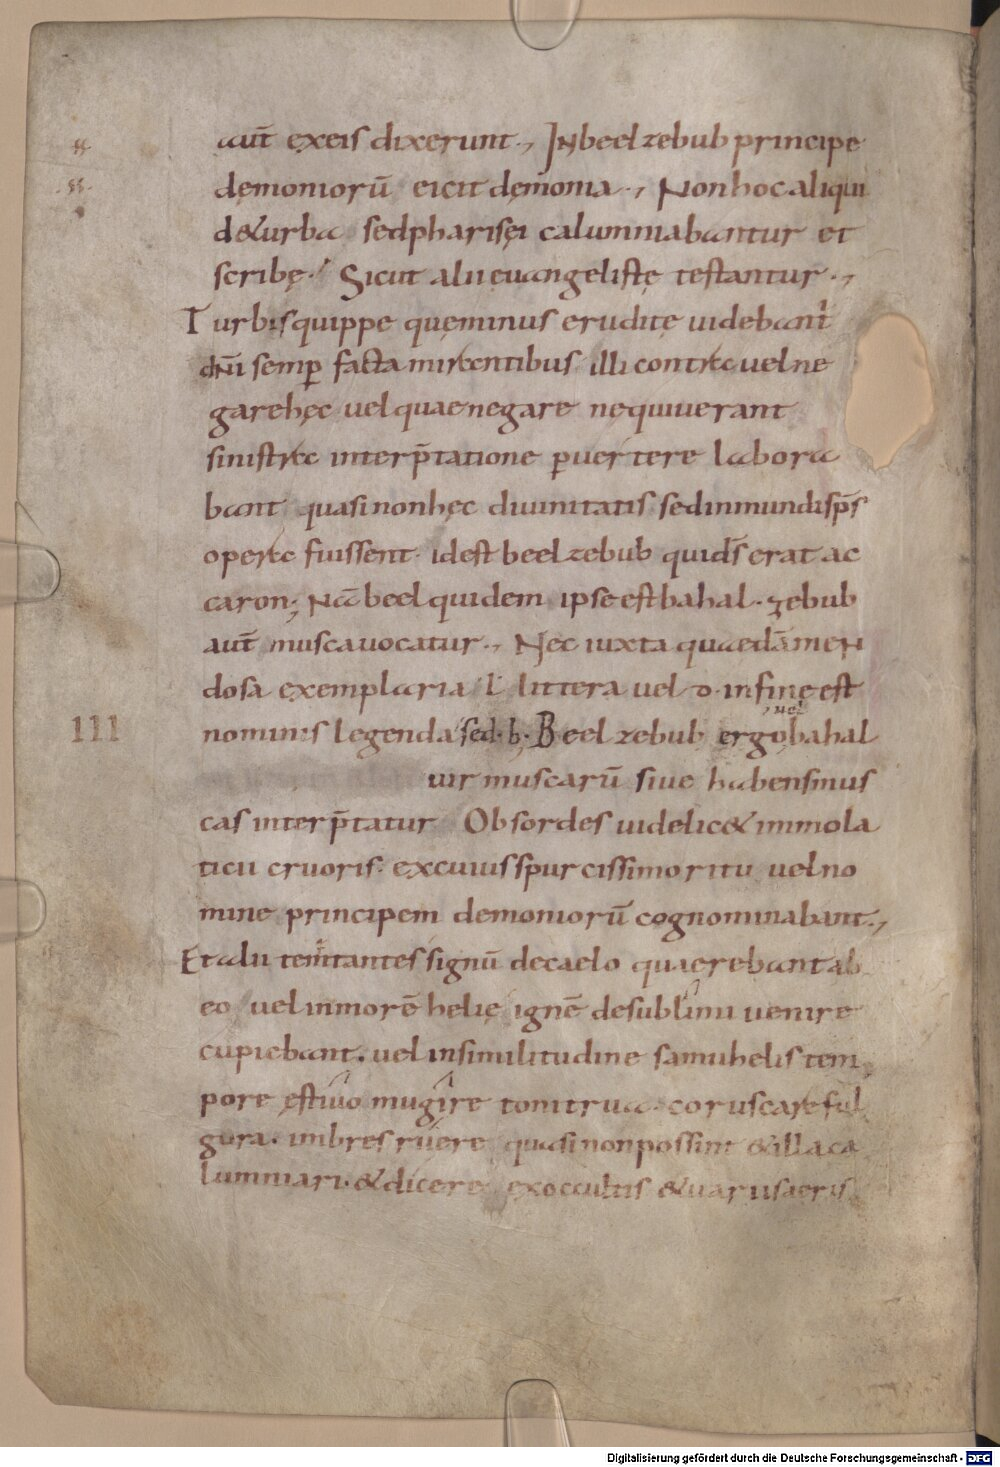 aut̄ exeis dixerunt., INbeelzebub principe
demoniorū eicit dęmonia., Nonhoc aliqui
d&urba sedpharisęi calumniabantur et
scribę. Sicut alii euangelistę testantur.,
Turbis quippe quęminus eruditę uidebant̄
dn̄i semper facta mirantibus illi contra uel ne
garehęc uel quae negare nequiuerant
sinistra interp̄tatione peruertere labora
bant quasi nonhęc diuinitatis sedinmundisp̄s
opera fuissent idest beelzebub quid̄s erat ac
caron; Nā beel quidem ipse est bahal. zebub
aut̄ musca uocatur., Nec iuxta quaedā meN
dosa exemplaria .l. littera uel .d. infine est
111 nominis legenda sed .b. Beelzebub ergo uel bahal
uir muscarū siue habens mus
cas interp̄tatur Ob sordes uidelic& immola
ticii cruoris. ex cuius spurcissimo ritu uel no
mine principem demoniorū cognominabant.,
Et alii temtantes signū de caelo quaerebant ab
eo uel inmorē helię ignē desublimi uenire
cupiebant. uel insimilitudine samuhelis tem
pore ęstiuo mugire tonitrua. coruscare ful
gura. imbres ruere quasi non possint &illa ca
lumniari. &dicere ex occultis &uariis aeris
Digitalisierung gefördert durch die Deutsche Forschungsgemeinschaft - DFG